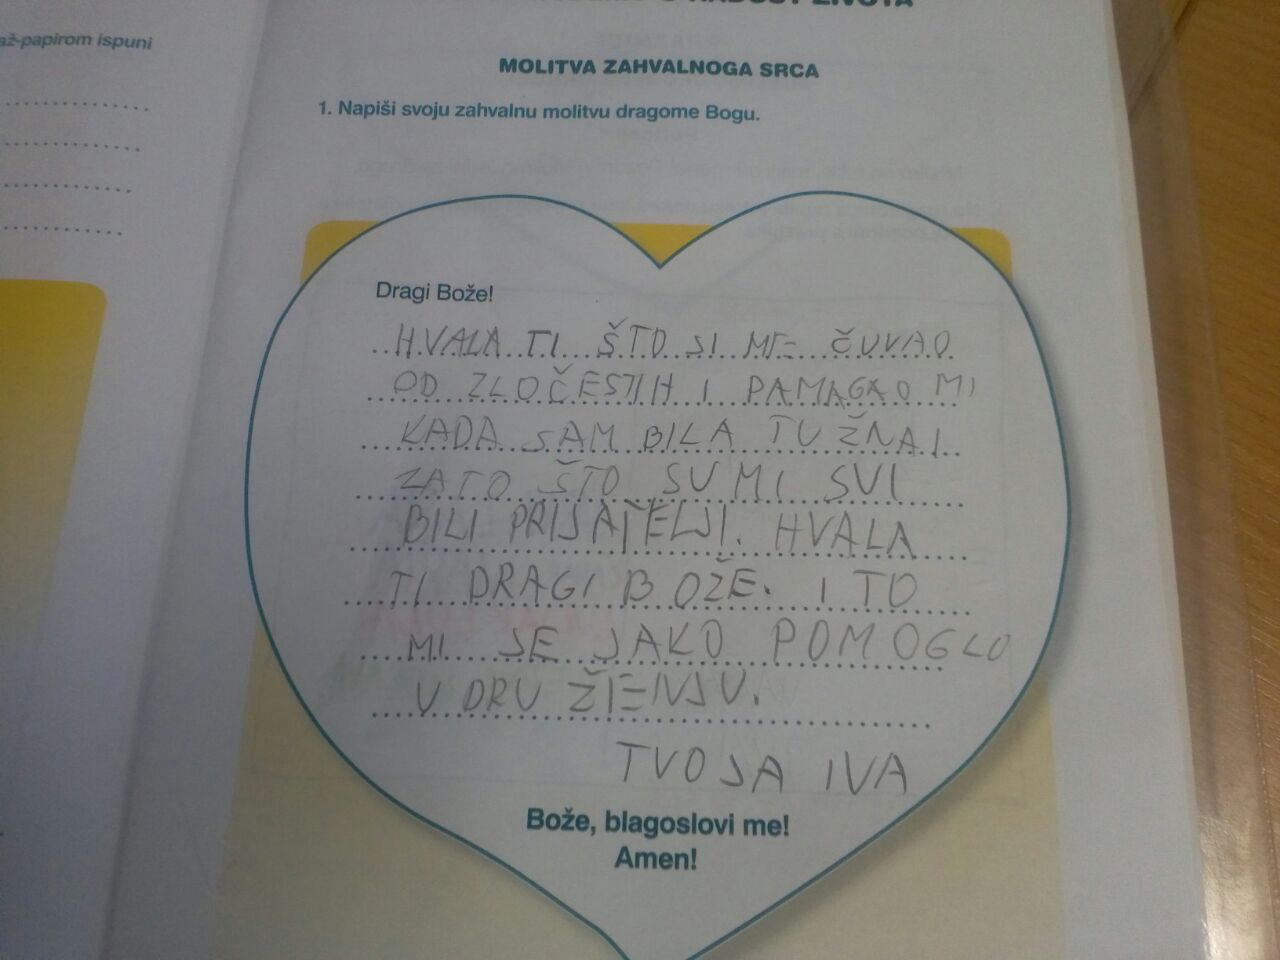 až-papirom ispuni
MOLITVA ZAHVALNOGA SRCA
1. Napiši svoju zahvalnu molitvu dragome Bogu.
Dragi Bože!
HVALA TI ŠTO SI ME ČUVAO
OD ZLOČESTIH I PAMAGAO MI
KADA SAM BILA TUŽNA I
ZATO ŠTO SU MI SVI
BILI PRIJATELJI. HVALA
TI DRAGI BOŽE. I TO
MI SE JAKO POMOGLO
U DRUŽENJU.
TVOJA IVA
Bože, blagoslovi me!
Amen!